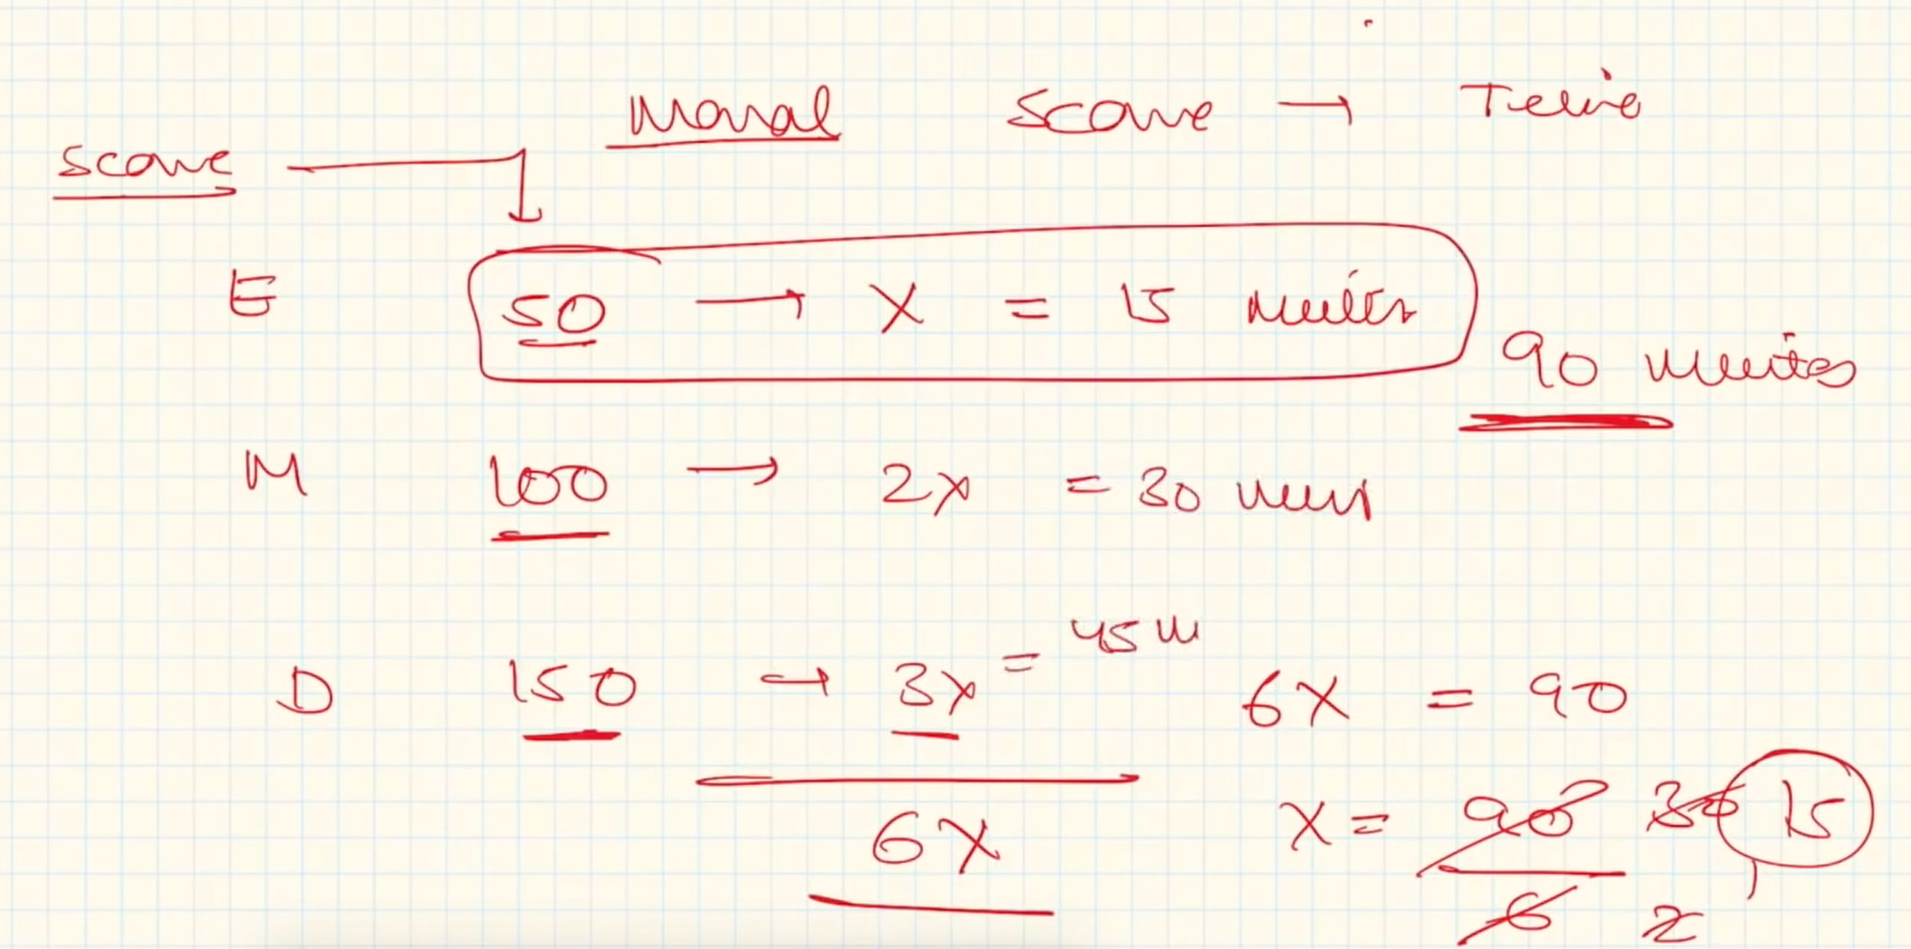 Moral Score → Time
Score
E 50 → X = 15 Minutes
90 Minutes
M 100 → 2x = 30 Min
D 150 → 3x = 45 M
6X = 90
6X
X = 90 30 15
6 2